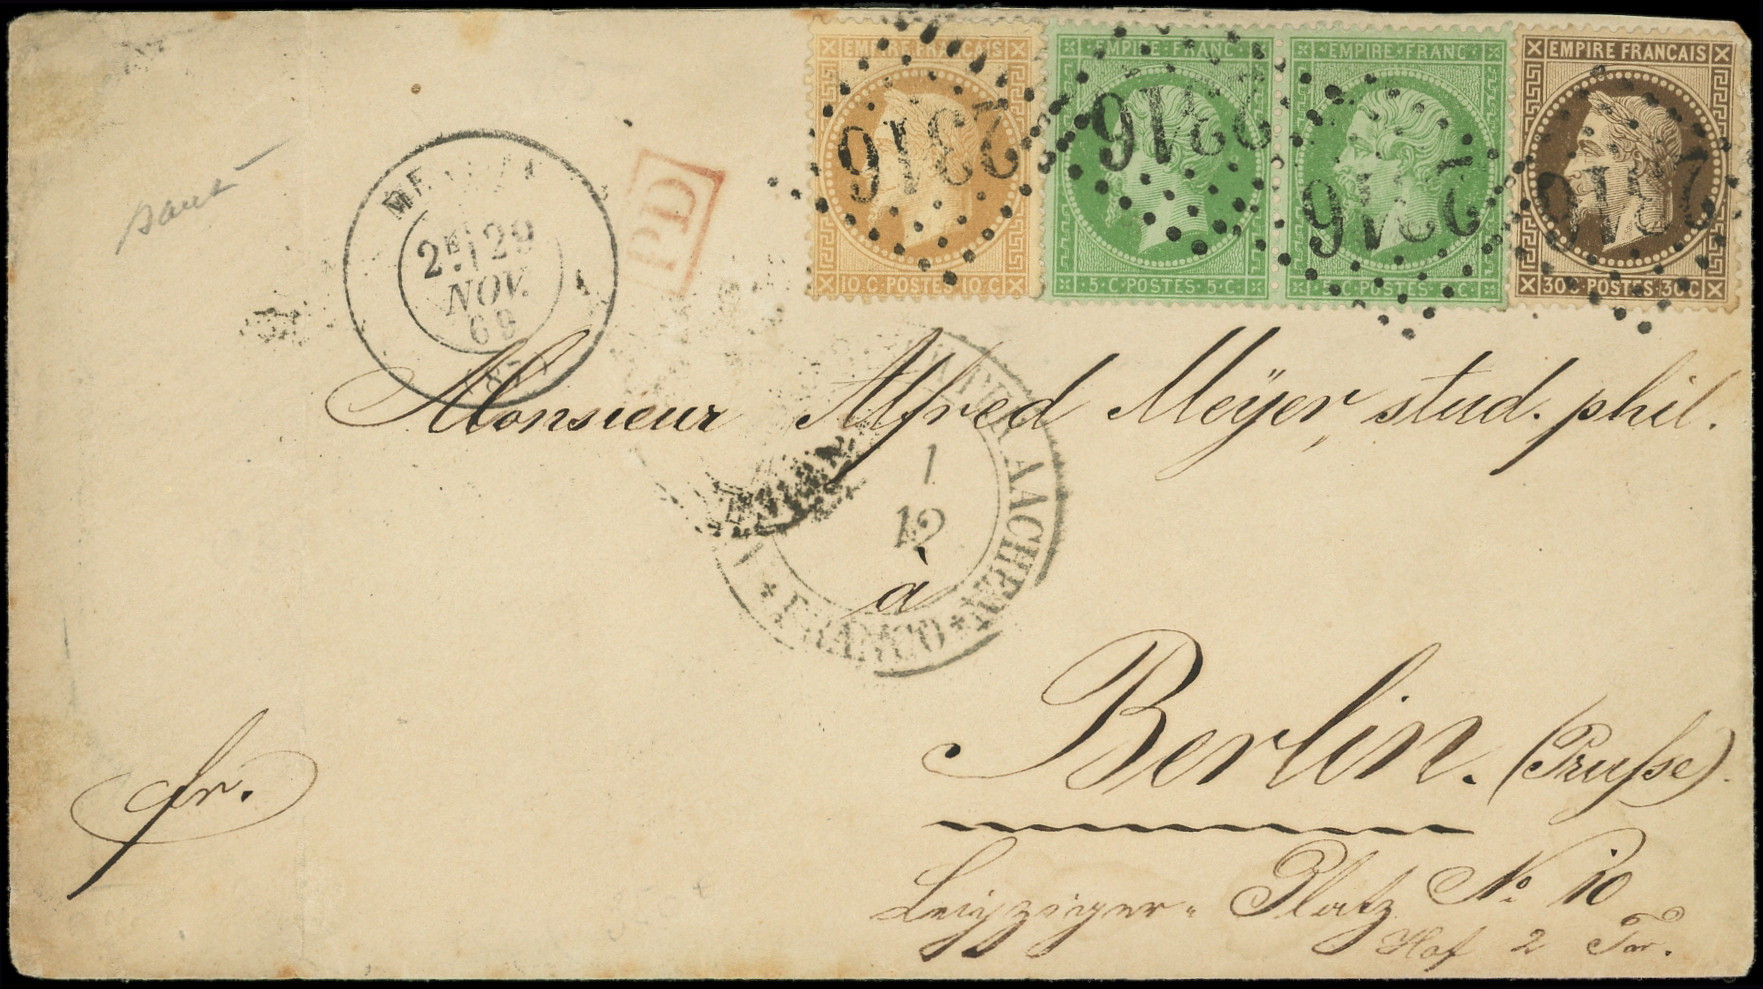 EMPIRE FRANÇAIS
10 C · POSTES · 10 C
EMPIRE FRANC
5 · C · POSTES · 5 · C
EMPIRE FRANC
5 · C · POSTES · 5 · C
EMPIRE FRANÇAIS
30 C · POSTES · 30 C
2316
2316
2316
2316
2E
29
NOV.
69
PD
AACHEN
1
12
FRANCO
Monsieur Alfred Meÿer, stud. phil.
à
Berlin. (Prusse).
fr.
Leipziger- Platz No 10
Hof 2 Tr.